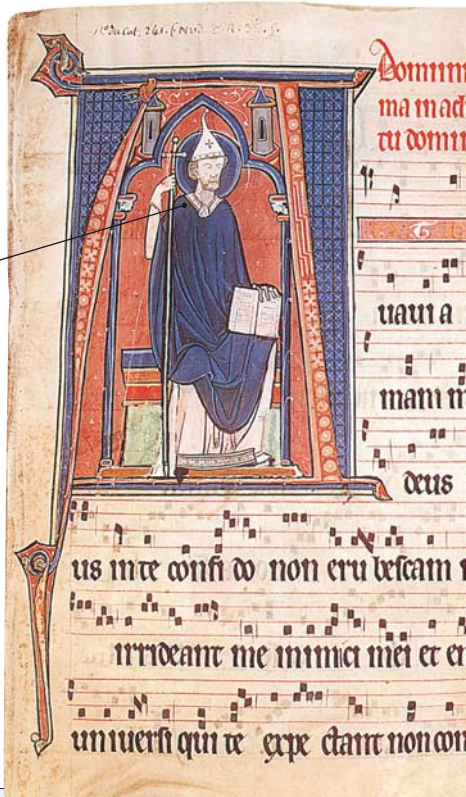 Nº du Cat. 241.
Domin
ma in ad
tu domi
uaui a
mam m
deus
us in te confi do non eru bescam
irrideant me inimici mei et e
uniuersi qui te expe ctant non con